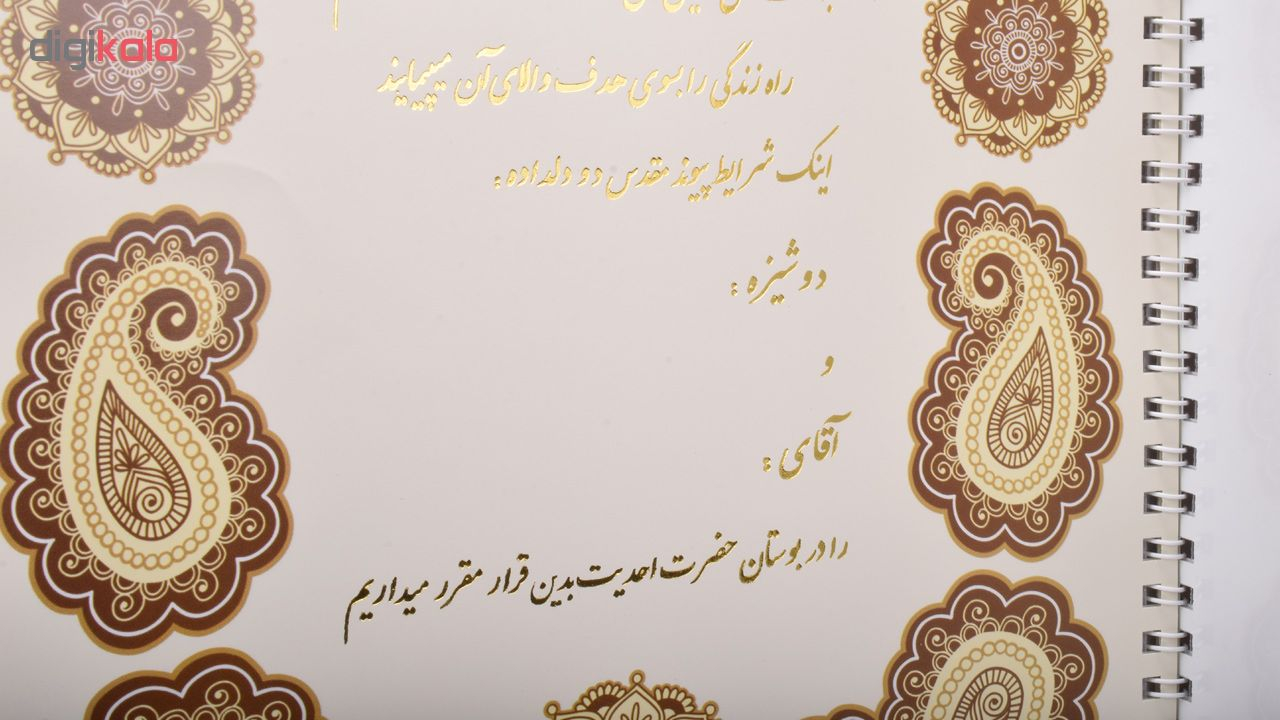 digikala
راه زندگی را بسوی هدف والای آن میپیمایند
اینک شرایط پیوند مقدس دو دلداده :
دوشیزه :
و
آقای :
را در بوستان حضرت احدیت بدین قرار مقرر میداریم